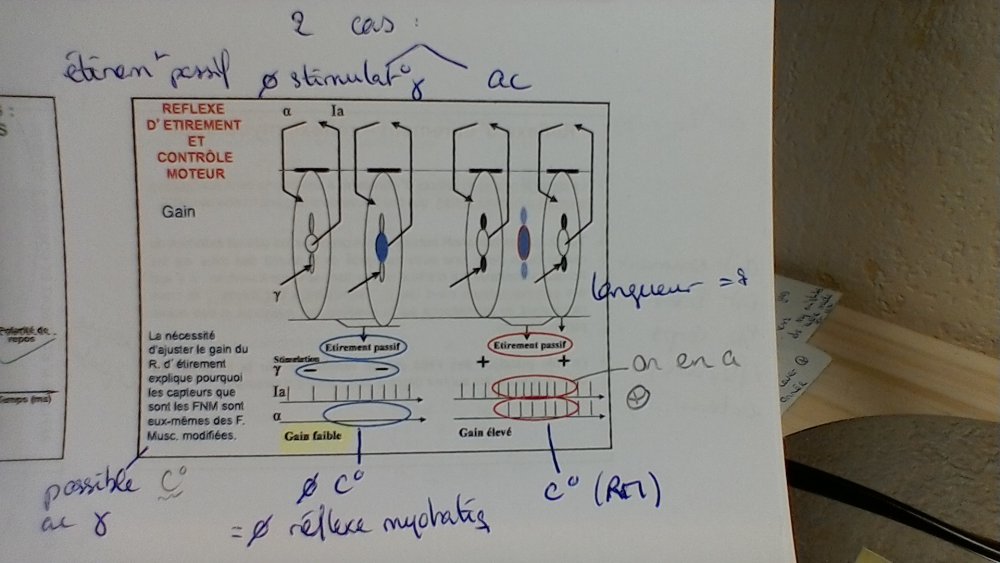 2 cas :
étiremt passif ∅ stimulat° γ ac
REFLEXE
D'ETIREMENT
ET
CONTRÔLE
MOTEUR
α Ia
Gain
γ
longueur =
La nécessité
d'ajuster le gain du
R. d'étirement
explique pourquoi
les capteurs que
sont les FNM sont
eux-mêmes des F.
Musc. modifiées.
Etirement passif
Etirement passif
Stimulation
γ − −
+ +
Ia
α
Gain faible
Gain élevé
on en a
⊕
possible C°
ac γ
∅ C°
= ∅ réflexe myotatiq
C° (RM)
Polarité de
repos
Temps (ms)